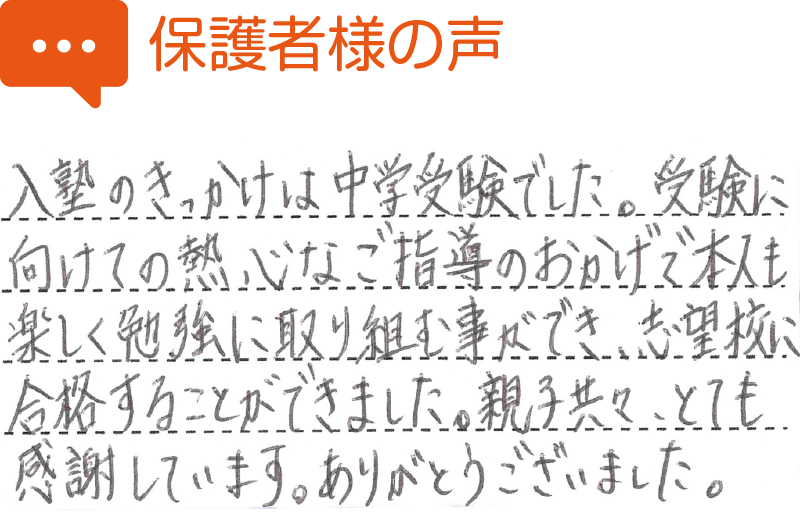 保護者様の声
入塾のきっかけは中学受験でした。受験に
向けての熱心なご指導のおかげで本人も
楽しく勉強に取り組む事ができ、志望校に
合格することができました。親子共々、とても
感謝しています。ありがとうございました。